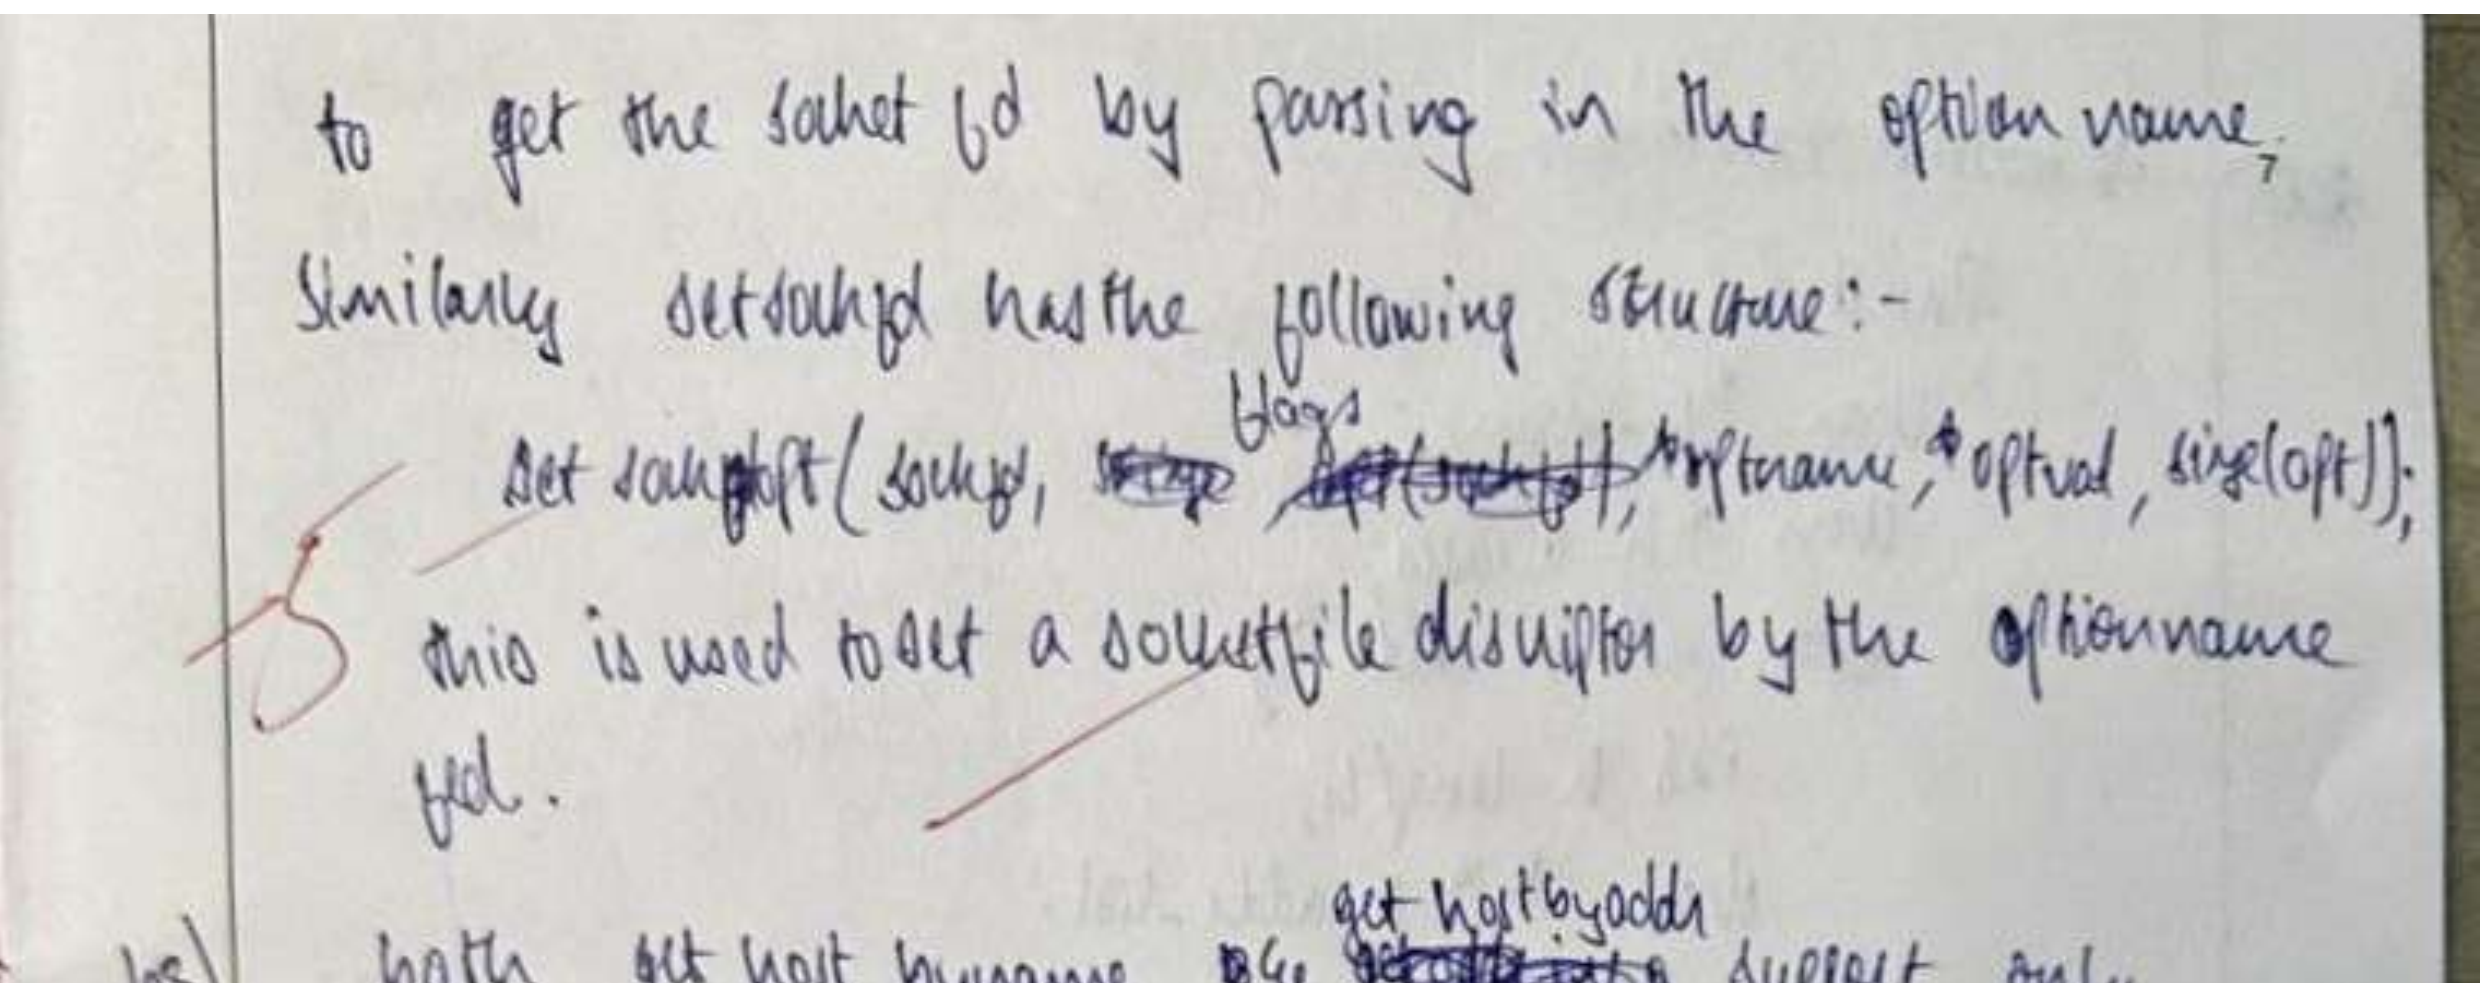 to get the socket fd by passing in the option name,
7
Similarly setsockfd has the following structure:-
flags
set sockopt( sockfd, *optname, * optval, size(opt));
this is used to set a socketfile discriptor by the optionname
fed.
5
get hostbyaddr
both get host byname support only